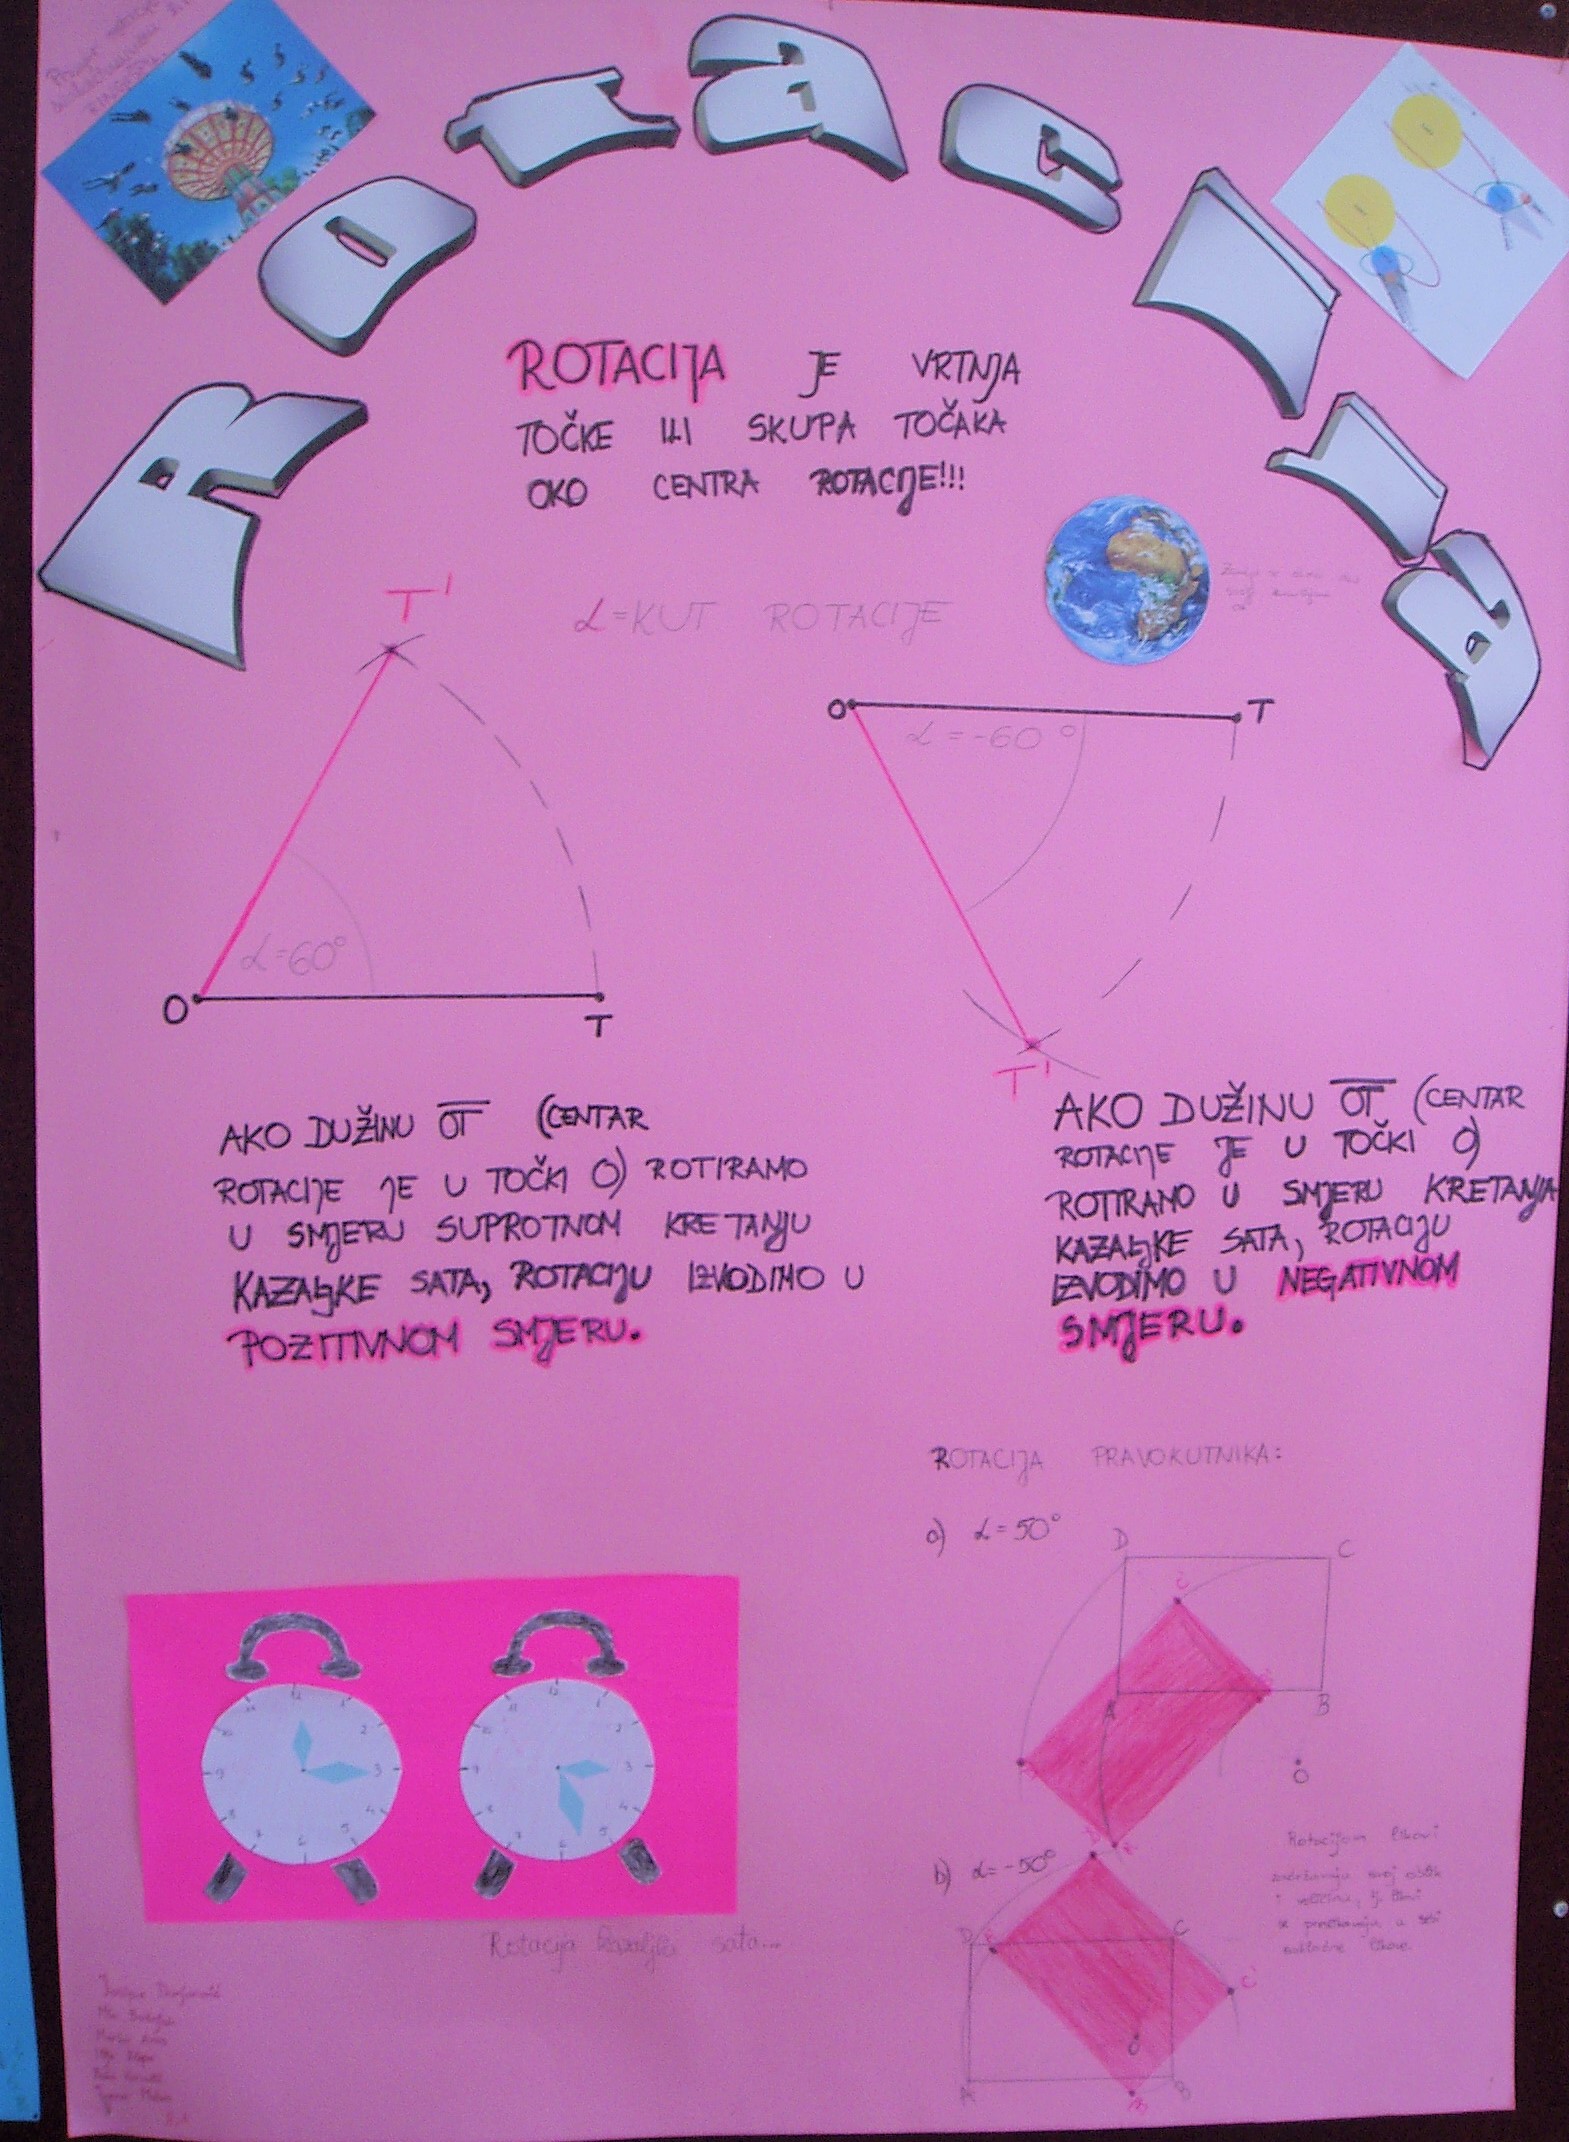 ROTACIJA
ROTACIJA JE VRTNJA
TOČKE ILI SKUPA TOČAKA
OKO CENTRA ROTACIJE!!!
α=KUT ROTACIJE
T'
α=60°
O
T
O
T
α=-60°
T'
AKO DUŽINU OT (CENTAR
ROTACIJE JE U TOČKI O) ROTIRAMO
U SMJERU SUPROTNOM KRETANJU
KAZALJKE SATA, ROTACIJU IZVODIMO U
POZITIVNOM SMJERU.
AKO DUŽINU OT (CENTAR
ROTACIJE JE U TOČKI O)
ROTIRAMO U SMJERU KRETANJA
KAZALJKE SATA, ROTACIJU
IZVODIMO U NEGATIVNOM
SMJERU.
ROTACIJA PRAVOKUTNIKA:
a) α=50°
D
C
A
B
O
b) α=-50°
D
C
C'
O
A
B
Rotacijom likovi
zadržavaju svoj oblik
i veličinu, tj. likovi
se preslikavaju u sebi
sukladne likove.
Rotacija kazaljki sata...